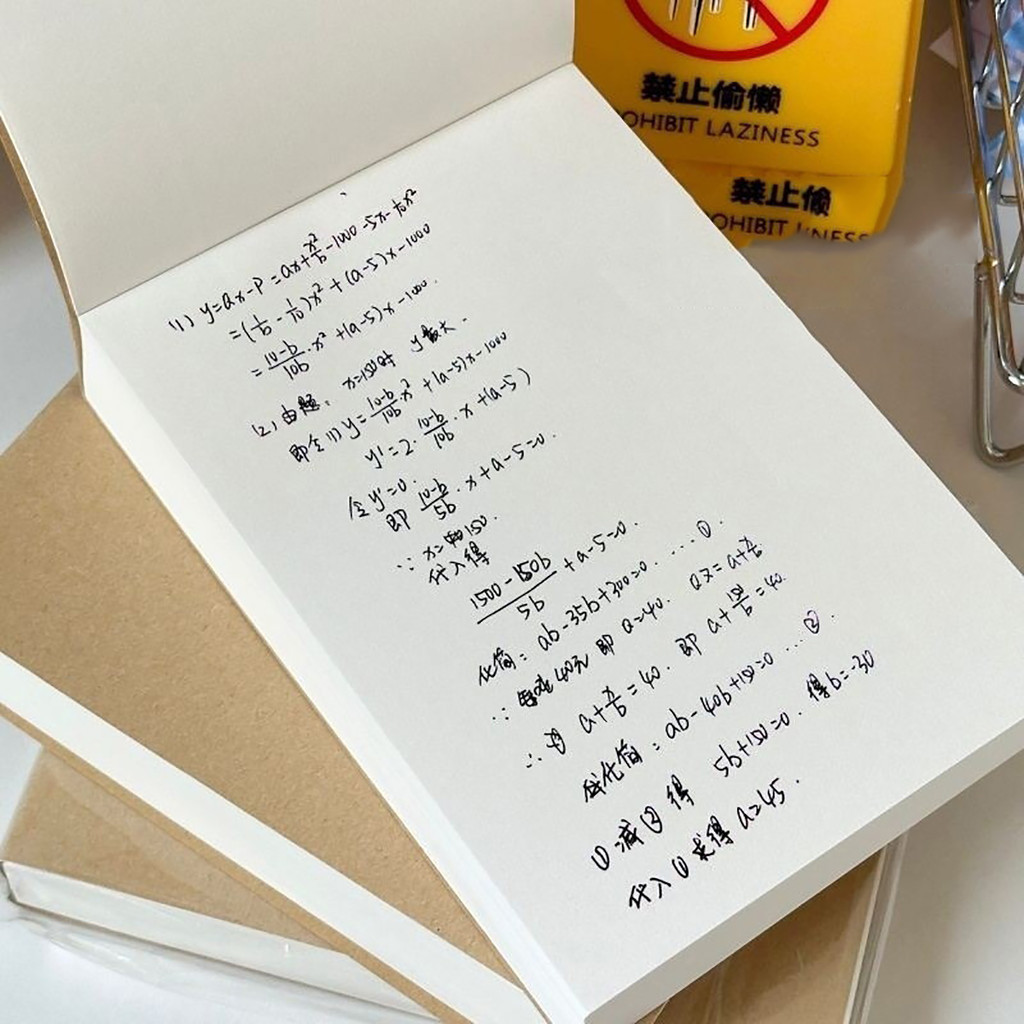 禁止偷懒
OHIBIT LAZINESS
禁止偷
OHIBIT L NESS
(1) y=ax-P=ax+x²/b-1000-5x-1/10x²
=(1/b-1/10)x²+(a-5)x-1000
=10-b/10b·x²+(a-5)x-1000.
(2)由题: x=150时 y最大.
即令(1) y=10-b/10b x²+(a-5)x-1000
y'=2·10-b/10b·x+(a-5)
令y'=0.
即 10-b/5b·x+a-5=0.
∵ x=150.
代入得
1500-150b/5b+a-5=0.
化简: ab-35b+300=0. ... ①
∵ 40元 即 Q=40. Q=a+x/b
∴ a+x/b=40. 即 a+150/b=40.
化简: ab-40b+150=0 ... ②.
①减②得 5b+150=0. 得b=-30
代入①求得 a=45.